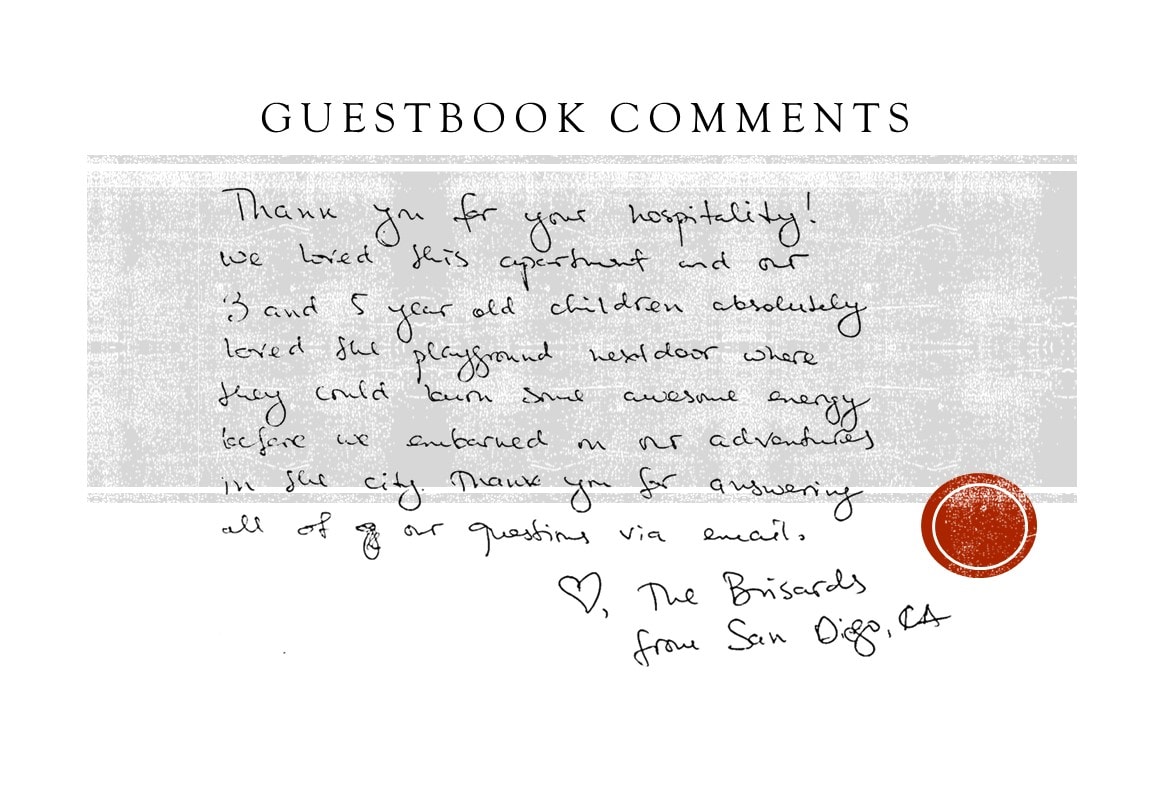 GUESTBOOK COMMENTS
Thank you for your hospitality!
We loved this apartment and our
3 and 5 year old children absolutely
loved the playground nextdoor where
they could burn some awesome energy
before we embarked on our adventures
in the city. Thank you for answering
all of our questions via email.
♡, The Brisards
from San Diego, CA